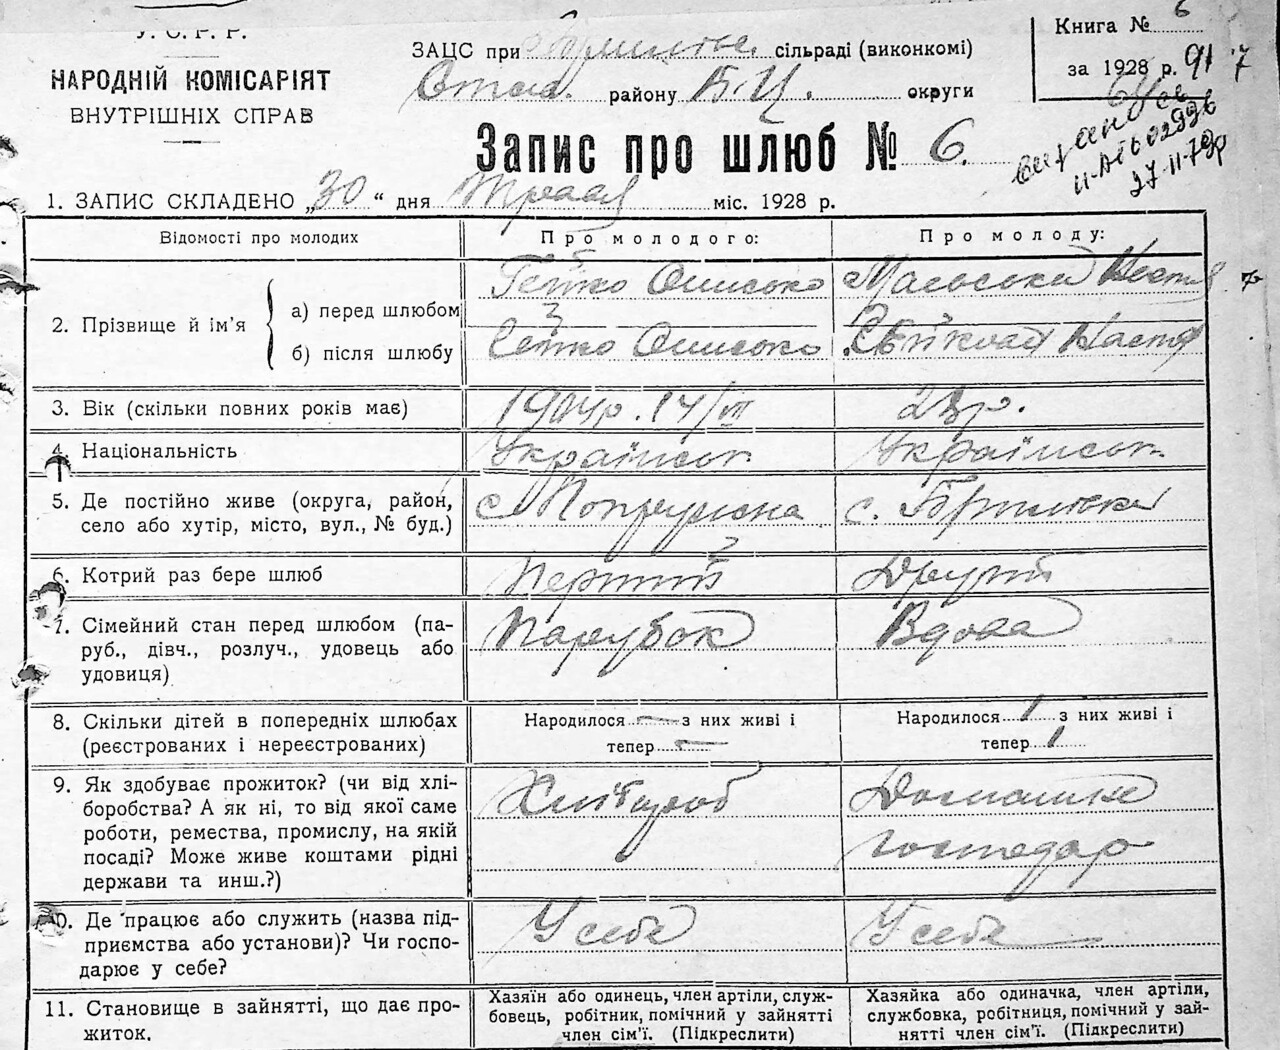 У. С. Р. Р.
НАРОДНІЙ КОМІСАРІЯТ
ВНУТРІШНІХ СПРАВ
ЗАЦС при сільраді (виконкомі)
району Б.Ц. округи
Книга № 6
за 1928 р. 91 7
Запис про шлюб № 6.
1. ЗАПИС СКЛАДЕНО „30“ дня Травня міс. 1928 р.
27-II-79р
Відомості про молодих
Про молодого:
Про молоду:
2. Прізвище й ім’я
а) перед шлюбом
Онисько
б) після шлюбу
Сейко Онисько
Настя
3. Вік (скільки повних років має)
1904р. 14/VII
23р.
4. Національність
Українськ.
Українськ.
5. Де постійно живе (округа, район,
село або хутір, місто, вул., № буд.)
с.
с.
6. Котрий раз бере шлюб
Перший
Другий
7. Сімейний стан перед шлюбом (па-
руб., дівч., розлуч., удовець або
удовиця)
Парубок
Вдова
8. Скільки дітей в попередніх шлюбах
(реєстрованих і нереєстрованих)
Народилося — з них живі і
тепер —
Народилося 1 з них живі і
тепер 1
9. Як здобуває прожиток? (чи від хлі-
боробства? А як ні, то від якої саме
роботи, ремества, промислу, на якій
посаді? Може живе коштами рідні
держави та инш.?)
Хлібороб
Домашнє
господар
10. Де працює або служить (назва під-
приємства або установи)? Чи госпо-
дарює у себе?
У себе
У себе
11. Становище в зайнятті, що дає про-
житок.
Хазяїн або одинець, член артіли, служ-
бовець, робітник, помічний у зайнятті
член сім’ї. (Підкреслити)
Хазяйка або одиначка, член артіли,
службовка, робітниця, помічний у зай-
нятті член сім’ї. (Підкреслити)